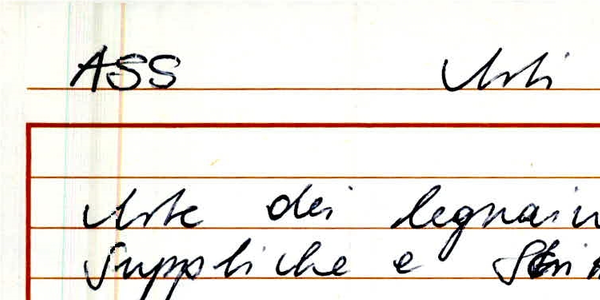 ASS Arti
Arte dei legnai
Suppliche e